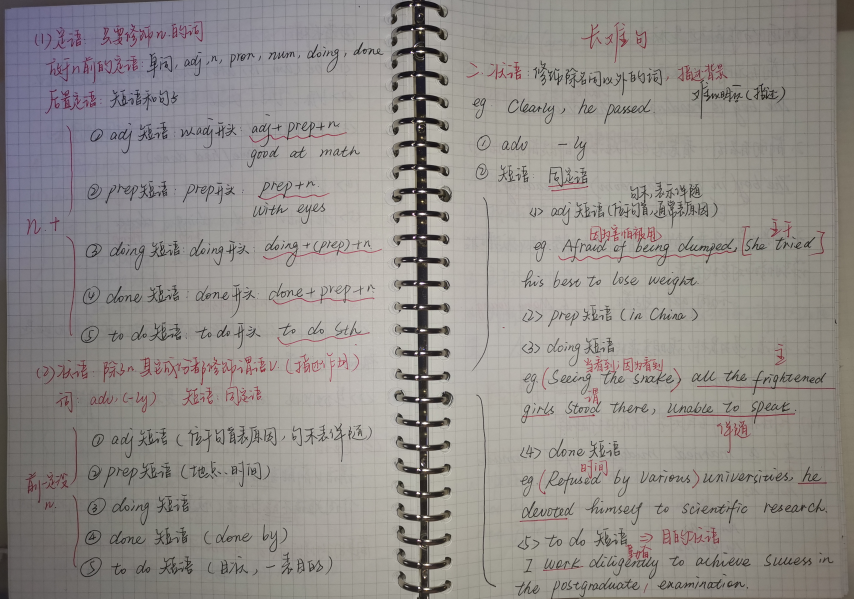 (1) 定语: 只要修饰n.的词
放于n前的定语: 单词, adj, n, pron, num, doing, done
后置定语: 短语和句子
① adj 短语 以adj开头: adj+prep+n
good at math
② prep短语: prep开头: prep+n
with eyes
n. +
③ doing 短语: doing开头: doing+(prep)+n
④ done 短语: done开头: done+prep+n
⑤ to do 短语: to do开头: to do sth
(2) 状语: 除了n. 其它成分都修饰谓语v.
词 adv. (-ly) 短语 固定语
① adj 短语 (位于句首表原因, 句末表伴随)
② prep短语 (地点、时间)
前一定没
n.
③ doing 短语
④ done 短语 (done by)
⑤ to do 短语 (目状, 一表目的)
长难句
二. 状语: 修饰除名词以外的词, 描述背景
eg Clearly, he passed.
① adv -ly
② 短语: 固定语
句末, 表示伴随
<1> adj 短语 (位于句首, 通常表原因)
因为害怕被甩 主干
eg. Afraid of being dumped, [she tried]
his best to lose weight.
<2> prep 短语 (in China)
<3> doing 短语 主
当看到, 因为看到
eg. (Seeing the snake) all the frightened
谓
girls stood there, unable to speak.
伴随
<4> done 短语
时间
eg (Refused by Various) universities, he
devoted himself to scientific research.
<5> to do 短语 ⇒ 目的状语
I work diligently to achieve success in
the postgraduate examination.